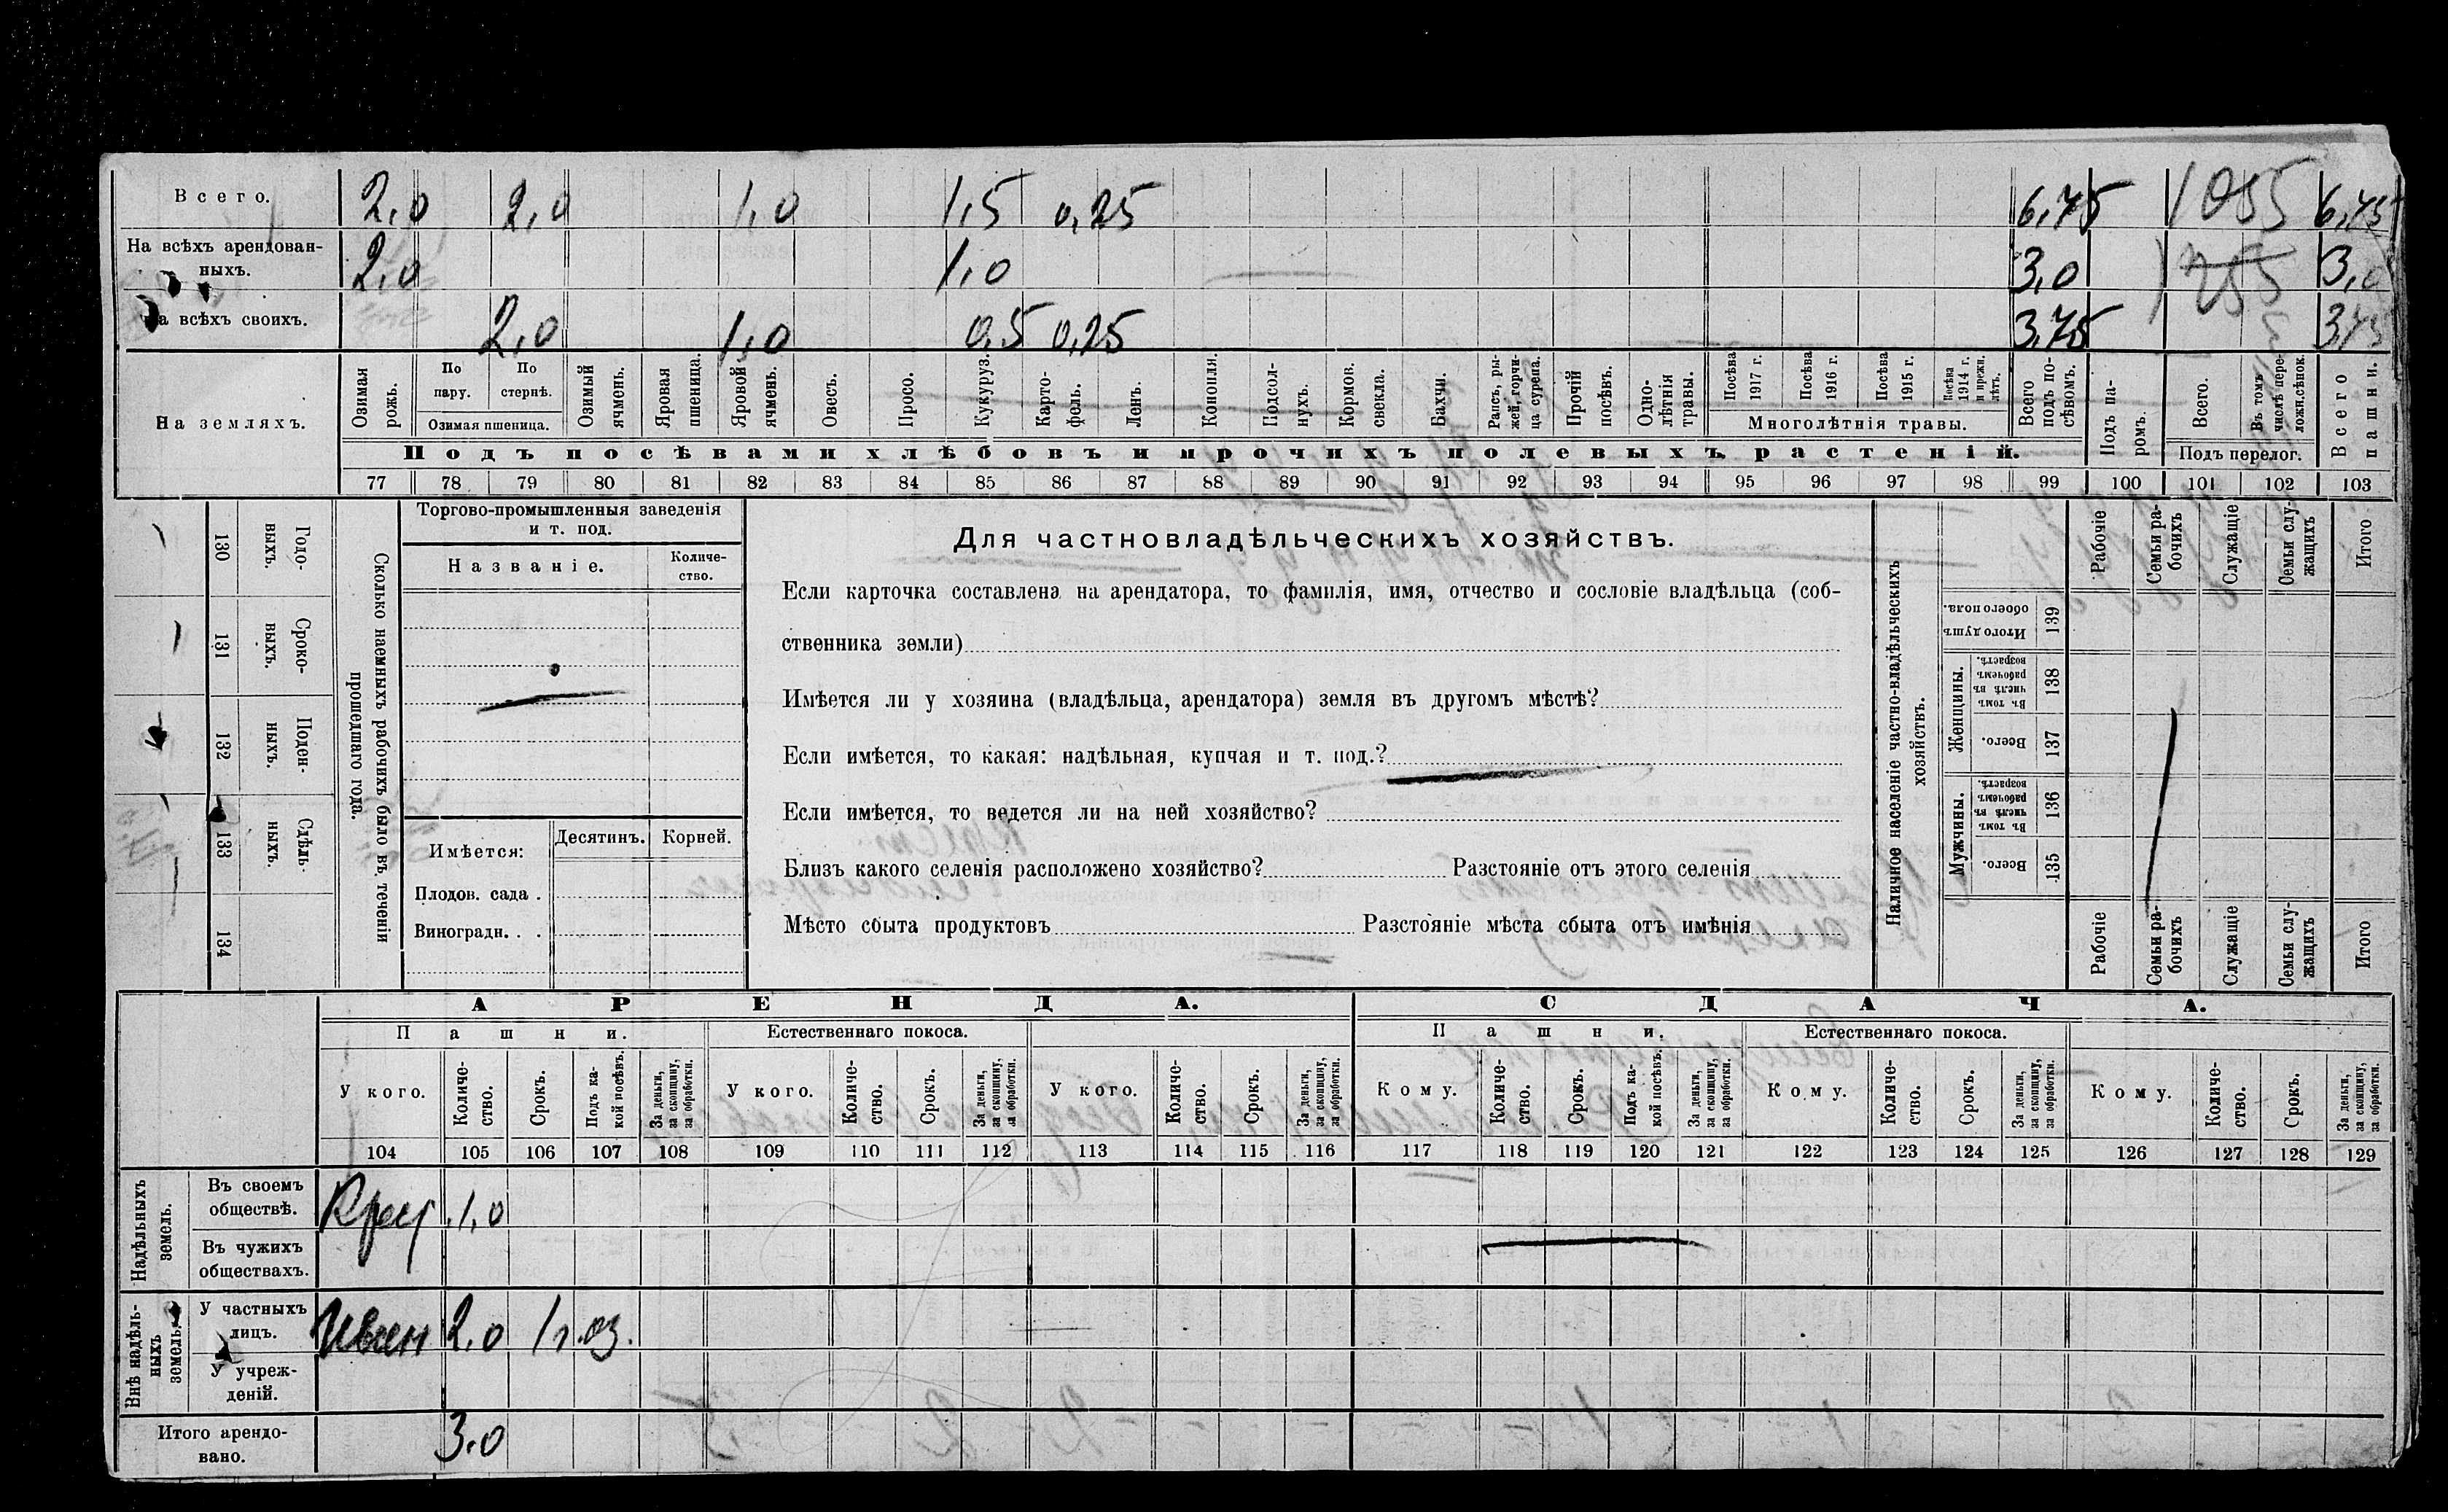 Всего. 2,0 2,0 1,0 1,5 0,25 6,75 1055 6,75
На всѣхъ арендован-
ныхъ. 2,0 1,0 3,0 3,0
На всѣхъ своихъ. 2,0 1,0 0,5 0,25 3,75 3,75
На земляхъ.
Озимая рожь.
По пару.
По стернѣ.
Озимая пшеница.
Озимый ячмень.
Яровая пшеница.
Яровой ячмень.
Овесъ.
Просо.
Кукуруз.
Карто-
фель.
Ленъ.
Конопля.
Подсол-
нухъ.
Кормов.
свекла.
Бахчи.
Рапсъ, ры-
жей, горчи-
ца сурепа.
Прочій
посѣвъ.
Одно-
лѣтнія
травы.
Посѣва
1917 г.
Посѣва
1916 г.
Посѣва
1915 г.
Посѣва
1914 г.
и прежн.
лѣтъ.
Многолѣтнія травы.
Всего
подъ по-
сѣвомъ.
Подъ па-
ромъ.
Всего.
Въ томъ
числѣ пере-
ложн. сѣнок.
Подъ перелог.
Всего
пашни.
Подъ посѣвами хлѣбовъ и прочихъ полевыхъ растеній.
77 78 79 80 81 82 83 84 85 86 87 88 89 90 91 92 93 94 95 96 97 98 99 100 101 102 103
130 Годо-
выхъ.
131 Сроко-
выхъ.
132 Поден-
ныхъ.
133 Сдѣль-
ныхъ.
134
Сколько наемныхъ рабочихъ было въ теченіи
прошедшаго года.
Торгово-промышленныя заведенія
и т. под.
Названіе.
Количе-
ство.
Имѣется: Десятинъ. Корней.
Плодов. сада .
Виноградн. . .
Для частновладѣльческихъ хозяйствъ.
Если карточка составлена на арендатора, то фамилія, имя, отчество и сословіе владѣльца (соб-
ственника земли)
Имѣется ли у хозяина (владѣльца, арендатора) земля въ другомъ мѣстѣ?
Если имѣется, то какая: надѣльная, купчая и т. под.?
Если имѣется, то ведется ли на ней хозяйство?
Близъ какого селенія расположено хозяйство? Разстояніе отъ этого селенія
Мѣсто сбыта продуктовъ Разстояніе мѣста сбыта отъ имѣнія
Наличное населеніе частно-владѣльческихъ
хозяйствъ.
Рабочіе
Семьи ра-
бочихъ
Служащіе
Семьи слу-
жащихъ
Итого
Итого душъ
обоего пола.
139
Женщины.
Въ томъ
числѣ въ
рабочемъ
возрастѣ.
138
Всего.
137
Мужчины.
Въ томъ
числѣ въ
рабочемъ
возрастѣ.
136
Всего.
135
Рабочіе
Семьи ра-
бочихъ
Служащіе
Семьи слу-
жащихъ
Итого
АРЕНДА. СДАЧА.
Пашни. Естественнаго покоса. Пашни. Естественнаго покоса.
У кого.
Количе-
ство.
Срокъ.
Подъ ка-
кой посѣвъ.
За деньги,
за скопщину,
за обработки.
У кого.
Количе-
ство.
Срокъ.
За деньги,
за скопщину,
за обработки.
У кого.
Количе-
ство.
Срокъ.
За деньги,
за скопщину,
за обработки.
Кому.
Количе-
ство.
Срокъ.
Подъ ка-
кой посѣвъ.
За деньги,
за скопщину,
за обработки.
Кому.
Количе-
ство.
Срокъ.
За деньги,
за скопщину,
за обработки.
Кому.
Количе-
ство.
Срокъ.
За деньги,
за скопщину,
за обработки.
104 105 106 107 108 109 110 111 112 113 114 115 116 117 118 119 120 121 122 123 124 125 126 127 128 129
Надѣльныхъ
земель.
Въ своемъ
обществѣ. Крест 1,0
Въ чужихъ
обществахъ.
Внѣ надѣль-
ныхъ
земель.
У частныхъ
лицъ. 2,0 1 г. оз.
У учреж-
деній.
Итого арендо-
вано. 3,0